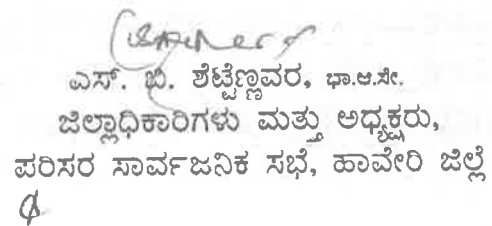 ಎಸ್. ಬಿ. ಶೆಟ್ಟೆಣ್ಣವರ, ಭಾ.ಆ.ಸೇ.
ಜಿಲ್ಲಾಧಿಕಾರಿಗಳು ಮತ್ತು ಅಧ್ಯಕ್ಷರು,
ಪರಿಸರ ಸಾರ್ವಜನಿಕ ಸಭೆ, ಹಾವೇರಿ ಜಿಲ್ಲೆ